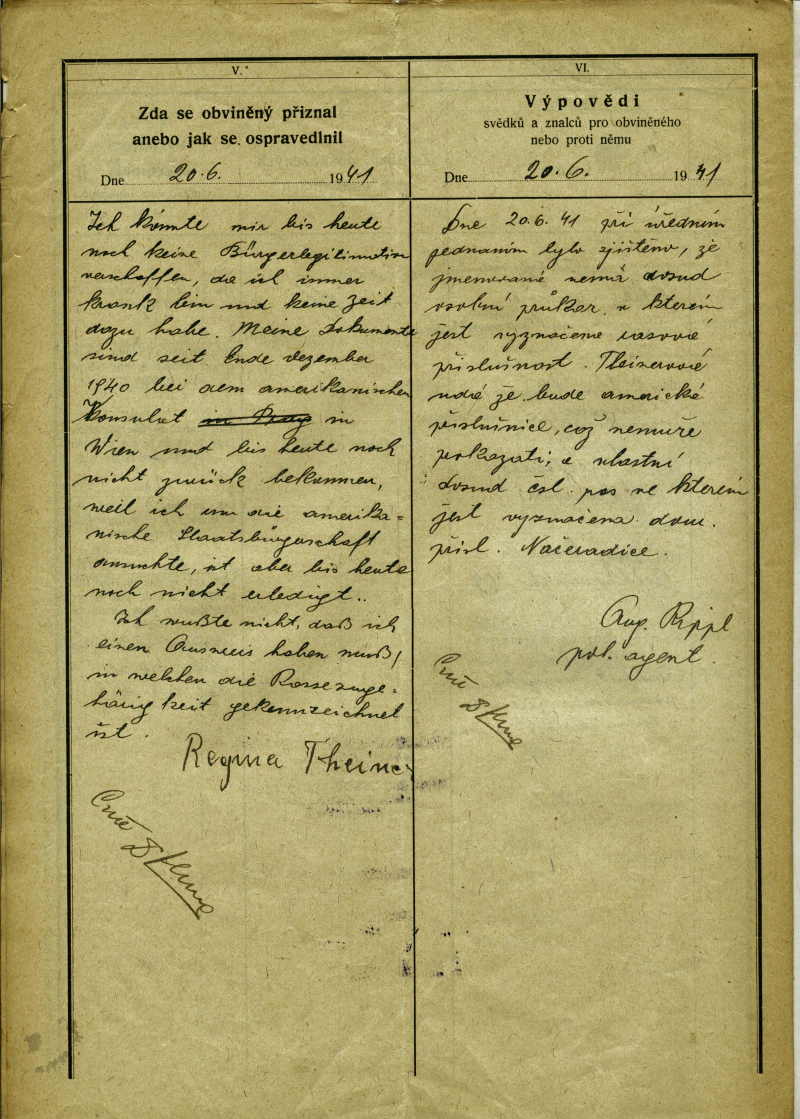 V.
Zda se obviněný přiznal
anebo jak se ospravedlnil
Dne 20.6. 1941
Ich konnte mir bis heute
noch keine Bürgerlegitimation
verschaffen, da ich immer
krank bin und keine Zeit
dazu habe. Meine Dokumente
sind seit Ende Dezember
1940 bei dem amerikanischen
Konsulat in Prag in
Wien und bis heute noch
nicht zurück bekommen,
weil ich um die amerika=
nische Staatsbürgerschaft
ansuchte, ist aber bis heute
noch nicht erledigt..
Ich wußte nicht, daß ich
einen Ausweis haben muß,
in welchen die Rassezuge=
hörigkeit gekennzeichnet
ist.
Regina Theiner
VI.
Výpovědi
svědků a znalců pro obviněného
nebo proti němu
Dne 20.6. 1941
Dne 20.6.41 při úředním
jednáním bylo zjištěno, že
jmenovaná nemá dosud
osobní průkaz, v kterém
jest vyznačeme rasová
příslušnost. Theinerová
udá že bude americké
příslušnice, což nemuže
pokazati, a vlastní
dosud čsl. pas ve kterém
jest vyznačena dom.
přísl. Načeradice.
Aug. Rippl
pol. agent.